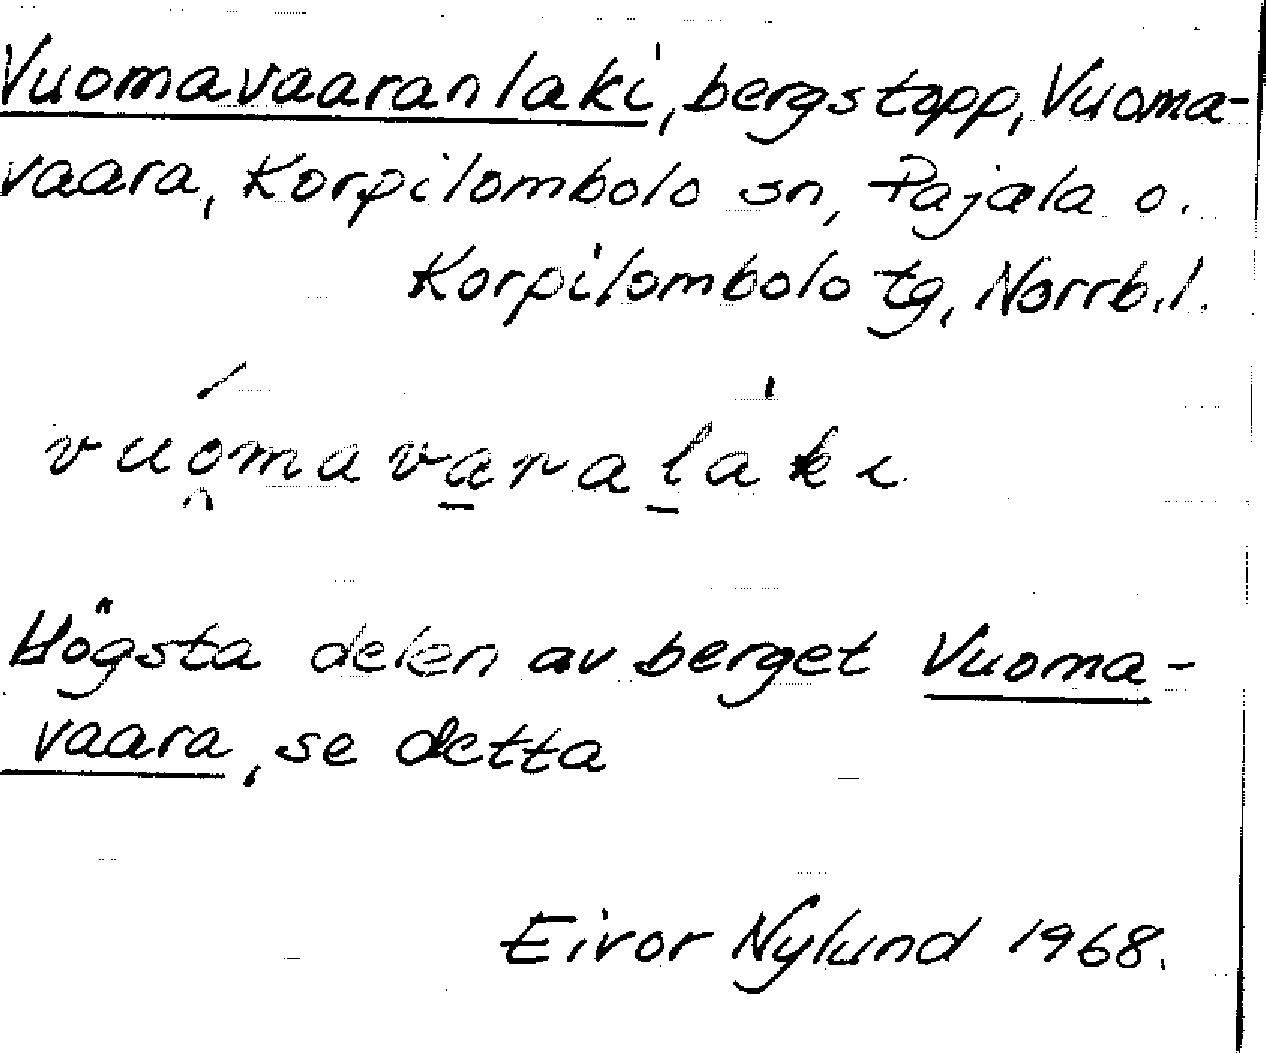 Vuomavaaranlaki, bergstopp, Vuoma-
vaara, Korpilombolo sn, Pajala o.
Korpilombolo tg, Norrb.l.
vuo̯̍mava̠ral̠ȧki
Högsta delen av berget Vuoma-
vaara, se detta
Eivor Nylund 1968.